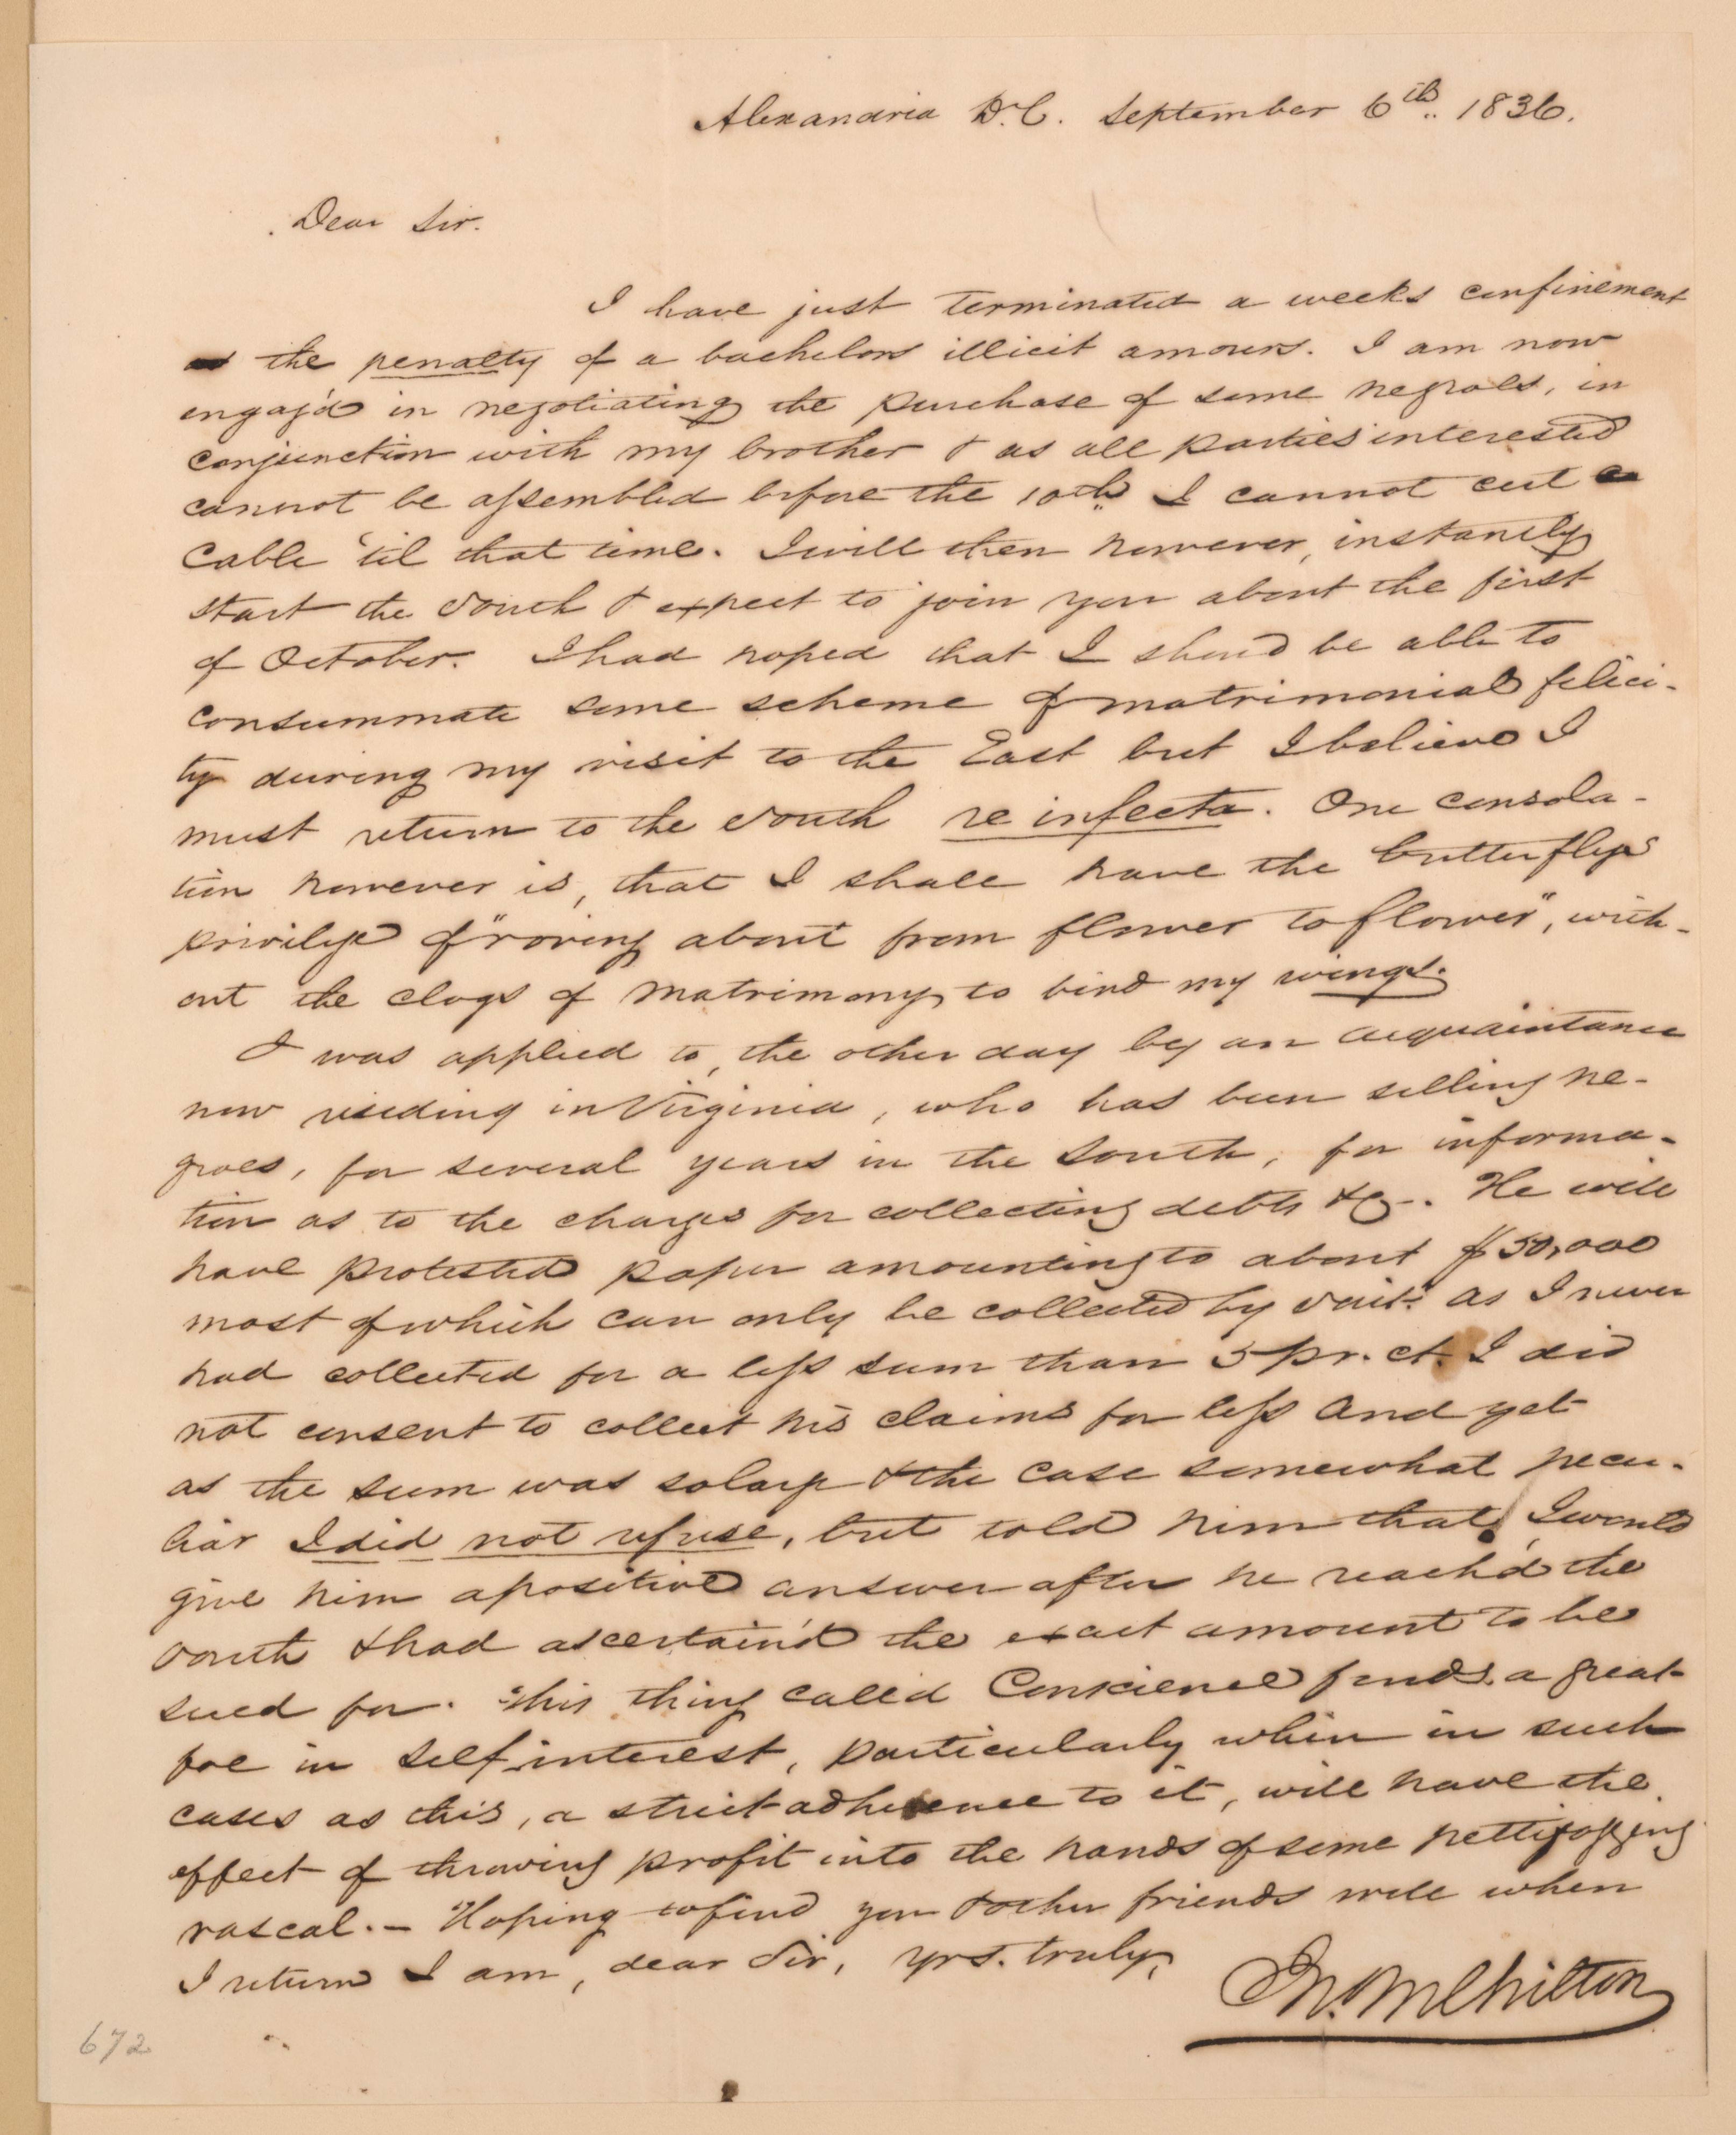 Alexandria D.C. September 6th.. 1836.
Dear Sir.
I have just terminated a weeks confinement
as the penalty of a bachelors illicit amours. I am now
engag'd in negotiating the purchase of some negroes, in
conjunction with my brother & as all parties interested
cannot be assembled before the 10th I cannot cut
Cable 'til that time. I will then however, instantly
start the South & expect to join you about the first
of October. I had hoped that I shou'd be able to
consummate some scheme of matrimonial felici-
ty during my visit to the East but I believe I
must return to the South re infecta. One consola-
tion however is, that I shall have the butterflys
privilege of "roving about from flower to flower", with-
out the clogs of matrimony to bind my wings.
I was applied to, the other day by an acquaintance
now residing in Virginia, who has been selling ne-
groes, for several years in the South, for informa-
tion as to the charges for collecting debts &c-. He will
have protested paper amounting to about $50,000
most of which can only be collected by suit. as I never
had collected for a less sum than 5 pr. ct. I did
not consent to collect his claims for less and yet
as the sum was so large & the case somewhat pecu-
liar I did not refuse, but told him that I would
give him a positive answer after he reach'd the
South & had ascertain'd the exact amount to be
sued for. This thing called Conscience finds a great
foe in self interest, particularly when in such
cases as this, a strict adherence to it, will have the
effect of throwing profit into the hands of some pettifogging
rascal. - Hoping to find you & other friends well when
I return I am, dear Sir, yrs. truly,
Jn. M Chilton
672